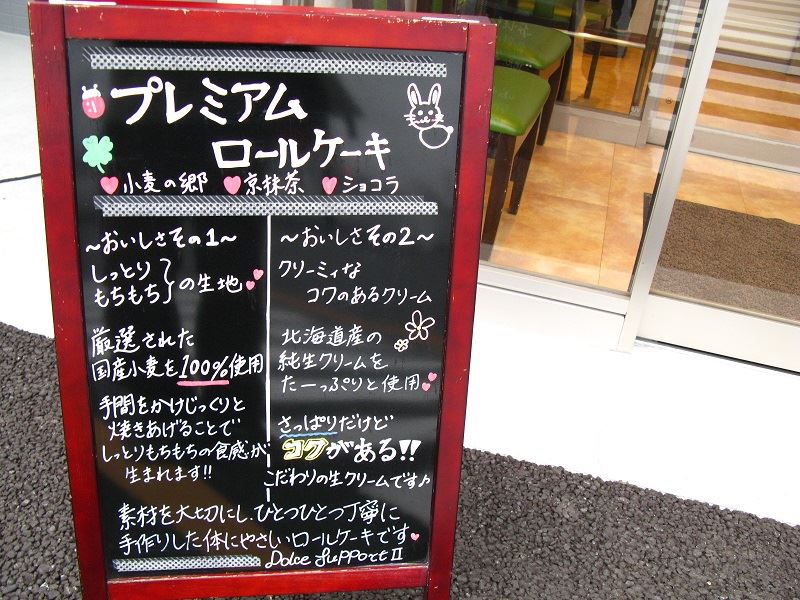 プレミアム
ロールケーキ
小麦の郷 京抹茶 ショコラ
～おいしさその1～
しっとり
もちもち｝の生地
厳選された
国産小麦を100%使用
手間をかけじっくりと
焼きあげることで
しっとりもちもちの食感が
生まれます!!
～おいしさその2～
クリーミィな
コクのあるクリーム
北海道産の
純生クリームを
たーっぷりと使用
さっぱりだけど
コクがある!!
こだわりの生クリームです♪
素材を大切にし、ひとつひとつ丁寧に
手作りした体にやさしいロールケーキです
Dolce Support II